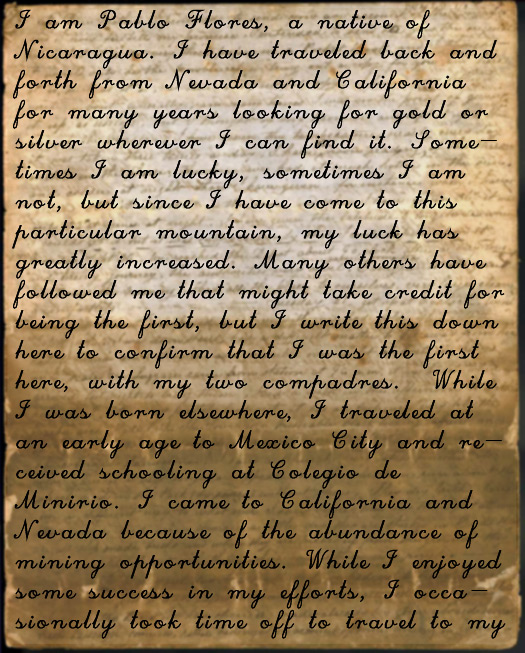 I am Pablo Flores, a native of
Nicaragua. I have traveled back and
forth from Nevada and California
for many years looking for gold or
silver wherever I can find it. Some—
times I am lucky, sometimes I am
not, but since I have come to this
particular mountain, my luck has
greatly increased. Many others have
followed me that might take credit for
being the first, but I write this down
here to confirm that I was the first
here, with my two compadres. While
I was born elsewhere, I traveled at
an early age to Mexico City and re—
ceived schooling at Colegio de
Minirio. I came to California and
Nevada because of the abundance of
mining opportunities. While I enjoyed
some success in my efforts, I occa—
sionally took time off to travel to my